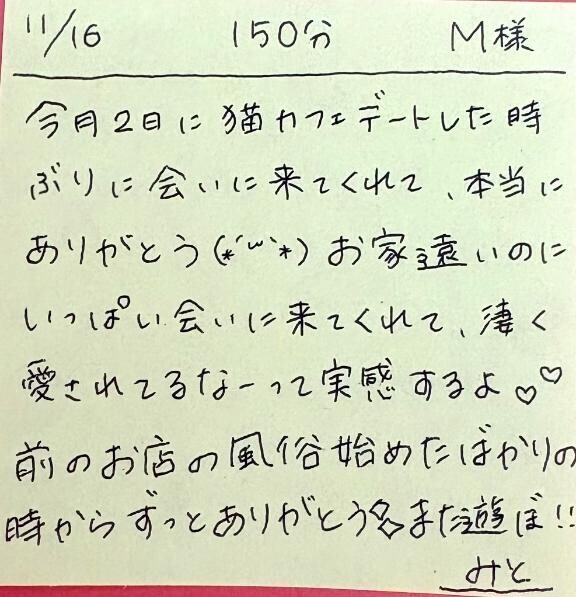 11/16 150分 M様
今月2日に猫カフェデートした時
ぶりに会いに来てくれて、本当に
ありがとう(*´ω`*)お家遠いのに
いっぱい会いに来てくれて、凄く
愛されてるなーって実感するよ♡♡
前のお店の風俗始めたばかりの
時からずっとありがとう💫また遊ぼ!!
みと